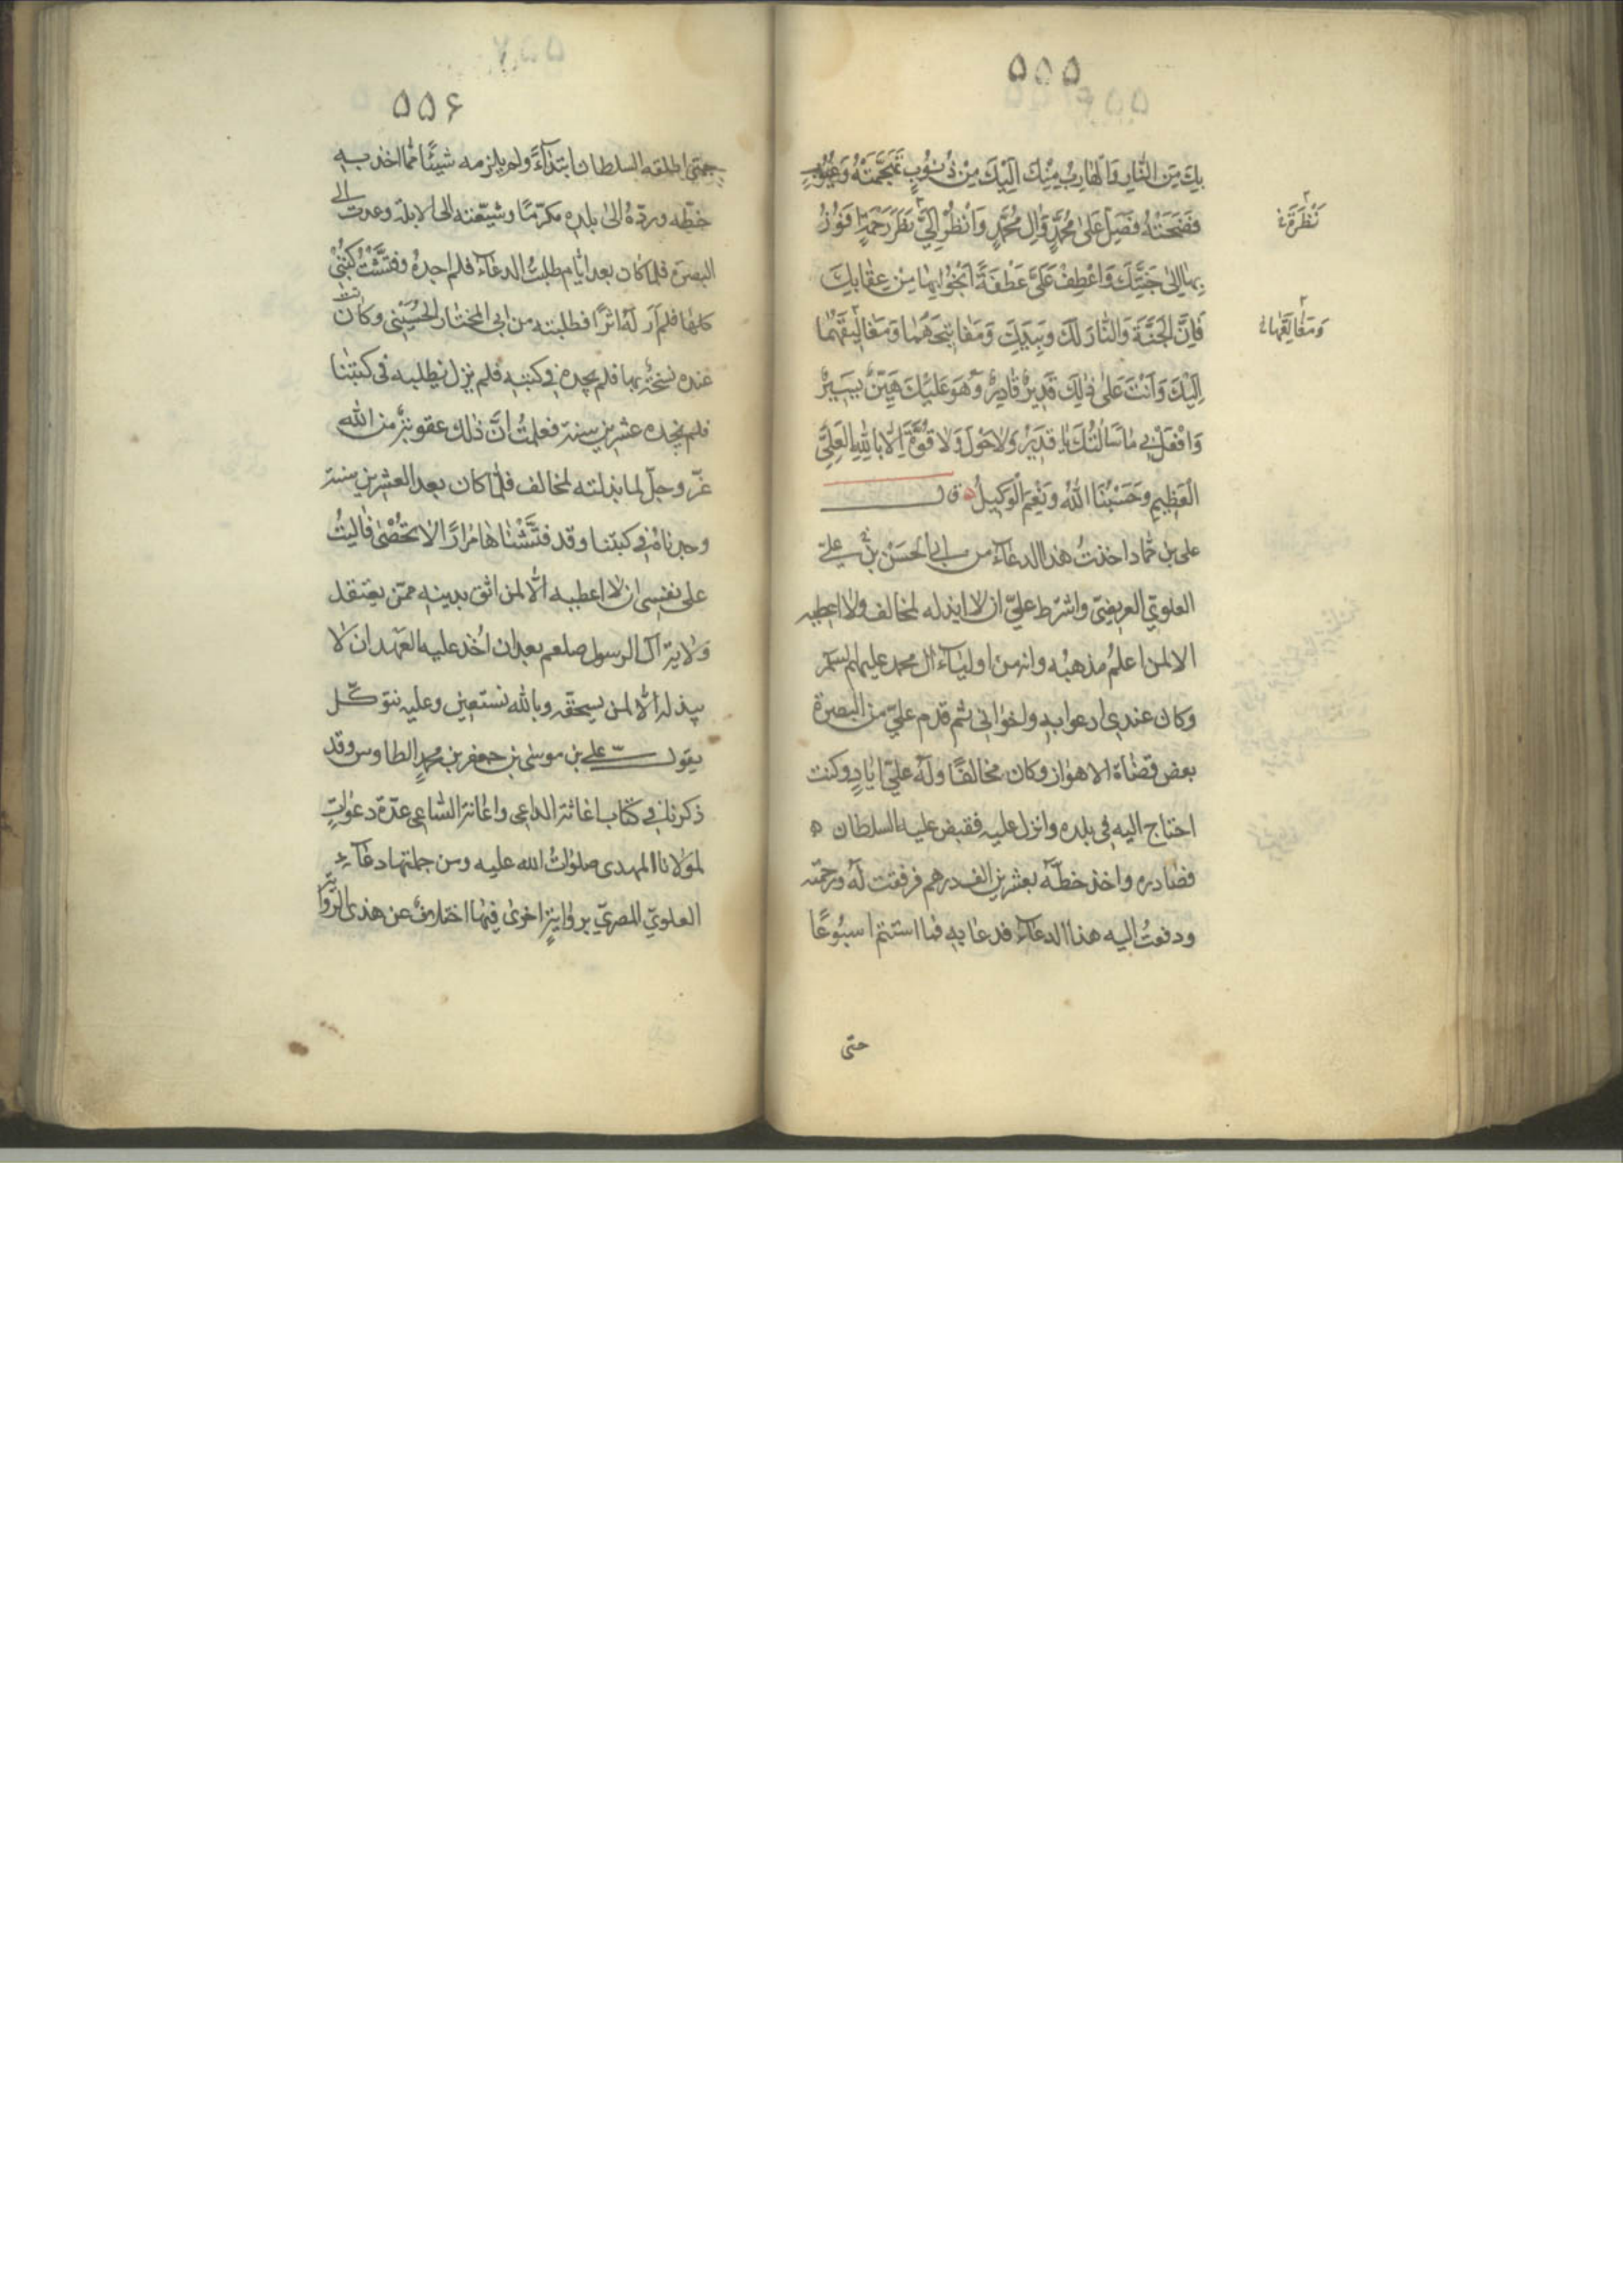 ۵۵۵
بِكَ مِنَ النَّارِ وَالْهَارِبُ مِنْكَ اِلَيْكَ مِنْ ذُنُوبٍ تَهَجَّمَتْهُ وَعُيُوبٍ
فَضَحَتْهُ فَصَلِّ عَلٰى مُحَمَّدٍ وَآلِ مُحَمَّدٍ وَانْظُرْ اِلَيَّ نَظَرَ رَحْمَةٍ اَفُوزُ
نَظْرَةً
بِهَا اِلٰى جَنَّتِكَ وَاعْطِفْ عَلَيَّ عَطْفَةً اَنْجُو بِهَا مِنْ عِقَابِكَ
فَاِنَّ الْجَنَّةَ وَالنَّارَ لَكَ وَبِيَدِكَ وَمَفَاتِيحَهُمَا وَمَغَالِيقَهُمَا
وَمَغَالِقَهَا
اِلَيْكَ وَاَنْتَ عَلٰى ذٰلِكَ قَدِيرٌ قَادِرٌ وَهُوَ عَلَيْكَ هَيِّنٌ يَسِيرٌ
وَافْعَلْ بِي مَا سَاَلْتُكَ يَا قَدِيرُ وَلَا حَوْلَ وَلَا قُوَّةَ اِلَّا بِاللّٰهِ الْعَلِيِّ
الْعَظِيمِ وَحَسْبُنَا اللّٰهُ وَنِعْمَ الْوَكِيلُ ق
علی بن حماد اخذت هذا الدعاء من ابی الحسن بن علی
العلوی العریضی واشترط علیّ ان لا ابذله لمخالف ولا اعطیه
الا لمن اعلم مذهبه وانه من اولیاء آل محمد علیهم السلم
وکان عندی ادعوا به واخوانی ثم قدم علیّ من البصرة
بعض قضاة الاهواز وکان مخالفًا وله علیّ ایادٍ وکنت
احتاج الیه فی بلده وانزل علیه فقبض علیه السلطان
فصادره واخذ خطّه بعشرین الف درهم فرققت له ورحمته
ودفعت الیه هذا الدعاء فدعا به فما استتم اسبوعًا
حتی
۵۵۶
حتی اطلقه السلطان ابتداءً ولم یلزمه شیئًا مما اخذ به
خطّه وردّه الی بلده مکرّمًا وشیّعته الی الابلة وعدت الی
البصرة فلما کان بعد ایام طلبت الدعاء فلم اجده وفتّشت کتبی
کلها فلم أر له اثرًا فطلبته من ابی المختار الحسینی وکانت
عنده نسخة بها فلم یجده فی کتبه فلم نزل نطلبه فی کتبنا
فلم نجده عشرین سنة فعلمت انّ ذلك عقوبة من الله
عزّ وجلّ لما بذلته لمخالف فلمّا کان بعد العشرین سنة
وجدناه فی کتبنا وقد فتّشناها مرارًا لا تحصی فآلیت
علی نفسی ان لا اعطیه الّا لمن اثق بدینه ممّن یعتقد
ولایة آل الرسول صلعم بعد ان اخذ علیه العهد ان لا
یبذله الّا لمن یستحقه وبالله نستعین وعلیه نتوکّل
یقول علی بن موسی بن جعفر بن محمد الطاوس وقد
ذکرنا فی کتاب اغاثة الداعی واعانة الساعی عدّة دعوات
لمولانا المهدی صلوات الله علیه ومن جملتها دعاء
العلویّ المصریّ بروایةٍ اخری فیها اختلاف عن هذی الروایة